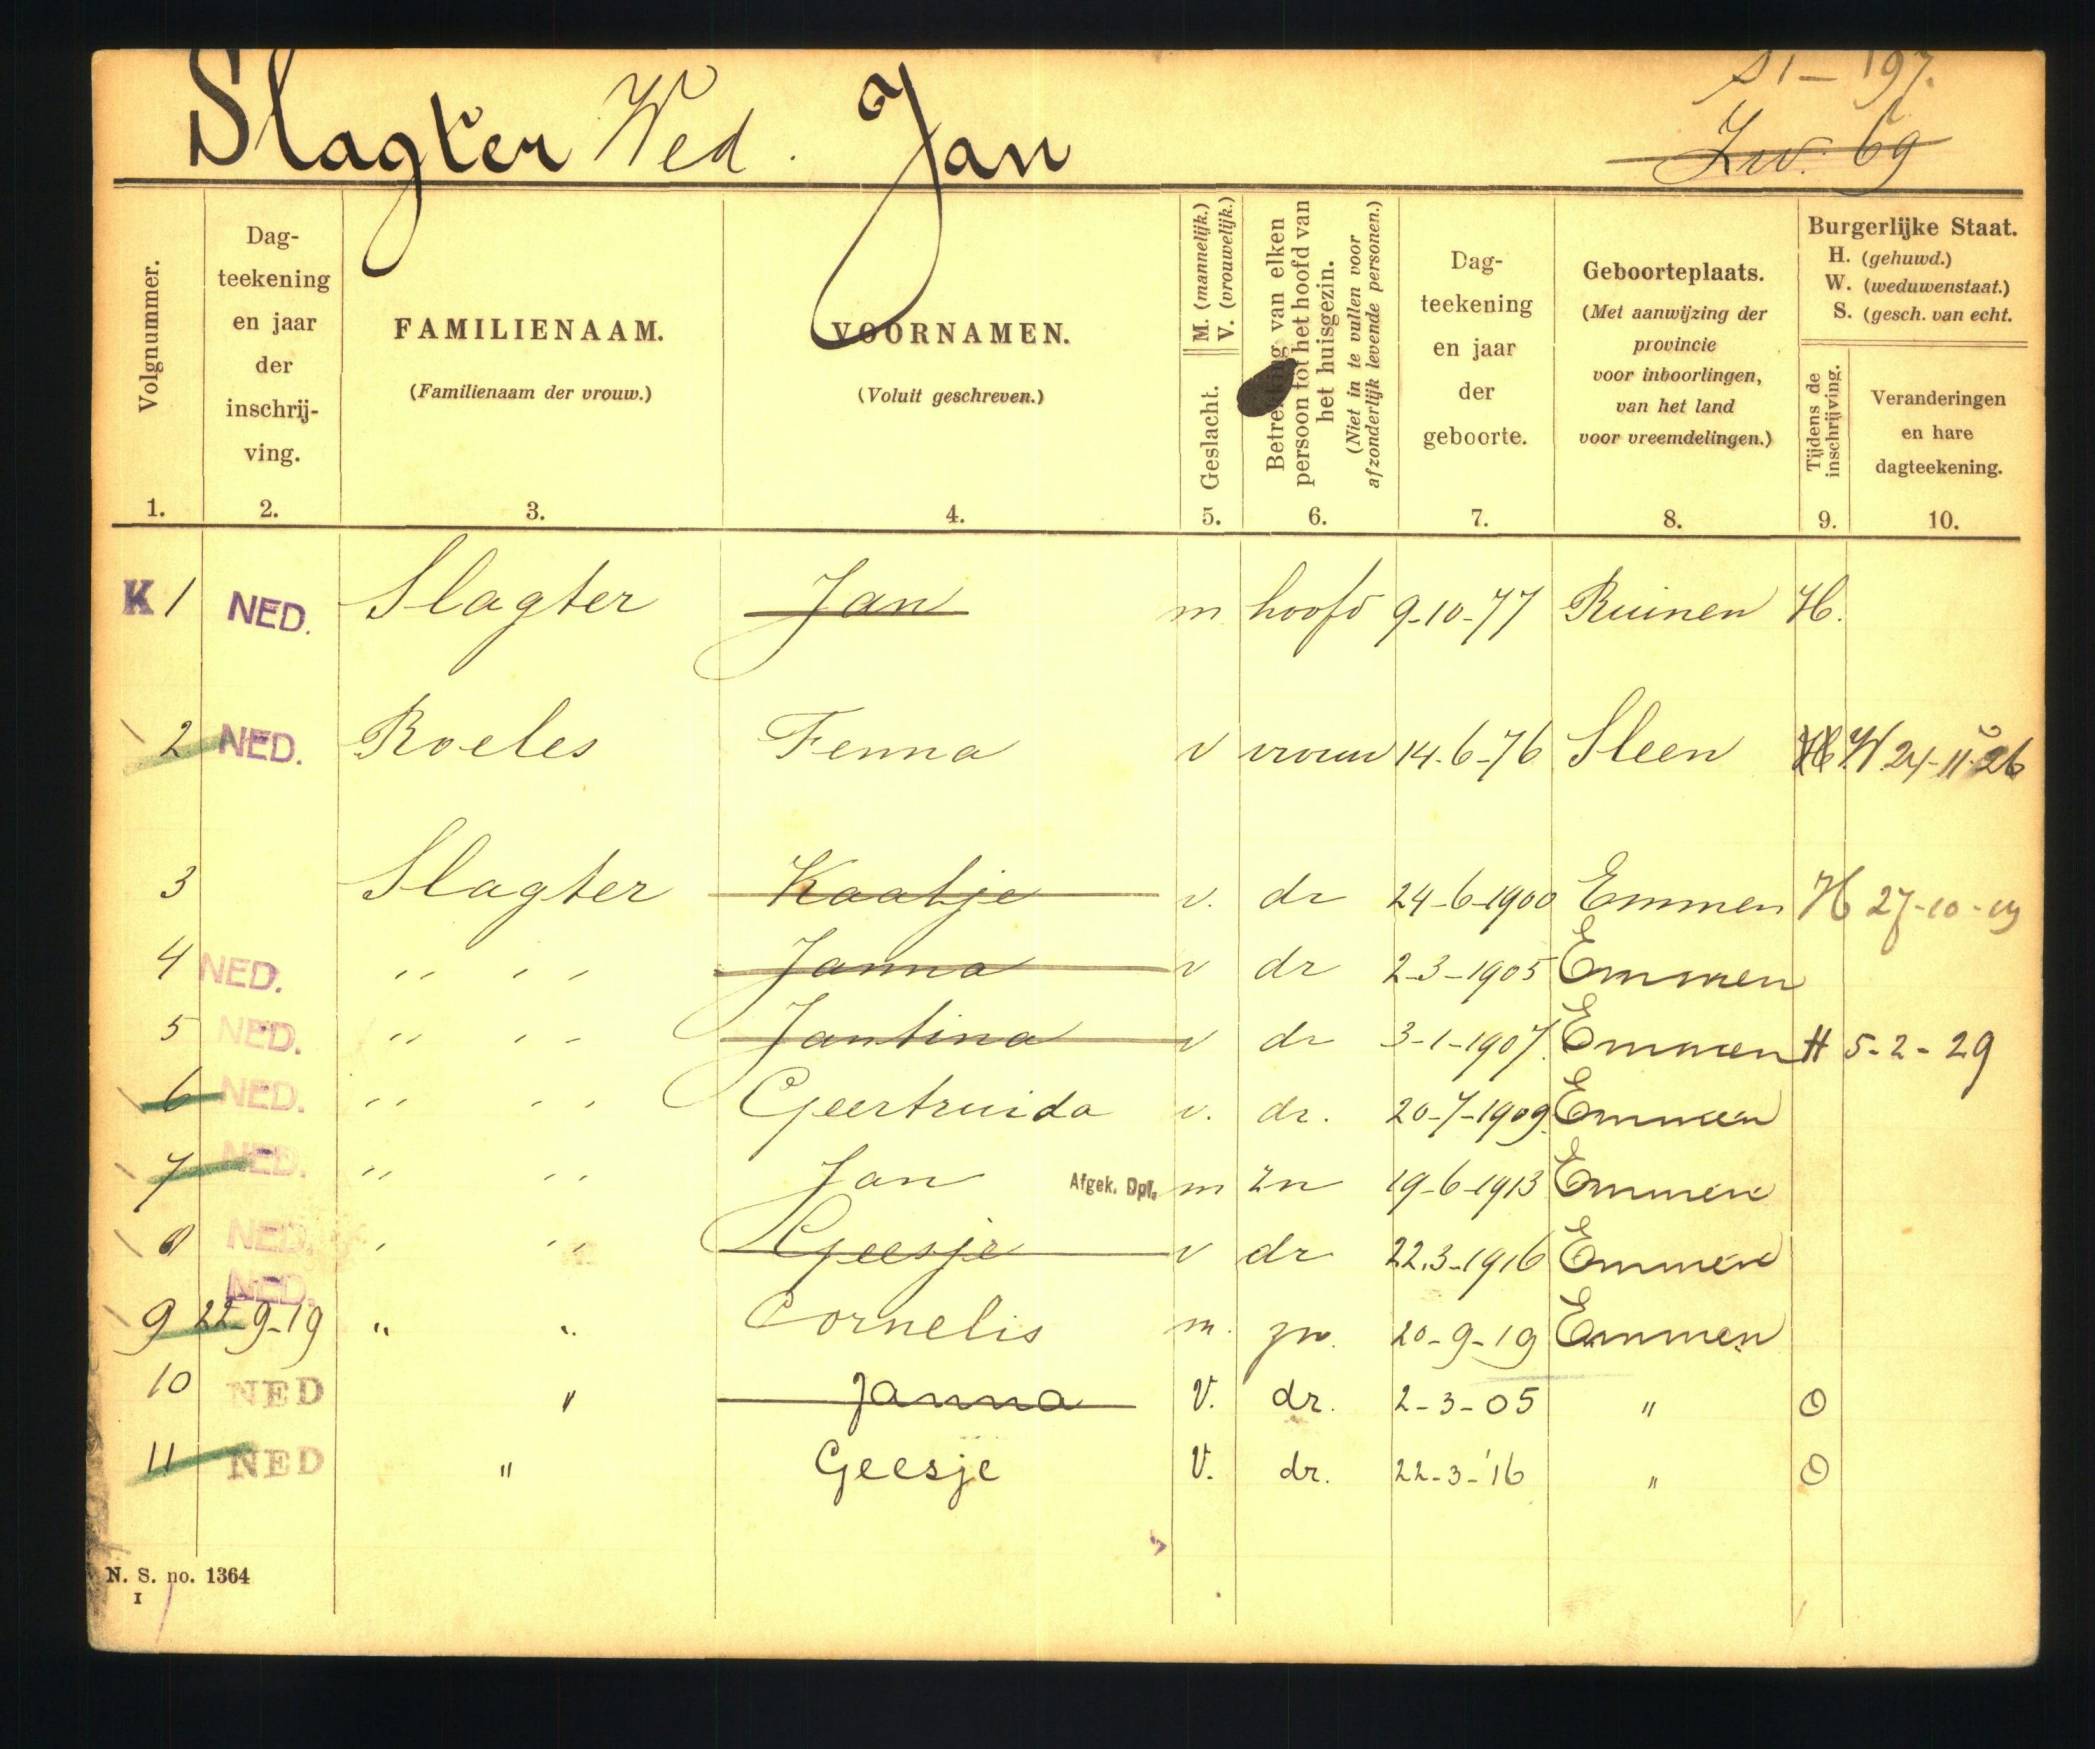 Sl - 197.
Slagter Wed. Jan
Zw. 69
Volgnummer.
Dag-
teekening
en jaar
der
inschrij-
ving.
FAMILIENAAM.
(Familienaam der vrouw.)
VOORNAMEN.
(Voluit geschreven.)
M. (mannelijk.)
V. (vrouwelijk.)
Geslacht.
Betrekking van elken
persoon tot het hoofd van
het huisgezin.
(Niet in te vullen voor
afzonderlijk levende personen.)
Dag-
teekening
en jaar
der
geboorte.
Geboorteplaats.
(Met aanwijzing der
provincie
voor inboorlingen,
van het land
voor vreemdelingen.)
Burgerlijke Staat.
H. (gehuwd.)
W. (weduwenstaat.)
S. (gesch. van echt.
Tijdens de
inschrijving.
Veranderingen
en hare
dagteekening.
1. 2. 3. 4. 5. 6. 7. 8. 9. 10.
K 1 NED. Slagter Jan m hoofd 9-10-77 Ruinen H.
2 NED. Roeles Fenna v vrouw 14-6-76 Sleen H W. 24-11-26
3 Slagter Kaatje v. dr 24-6-1900 Emmen H 27-10-19
4 NED. " " Janna v dr 2-3-1905 Emmen
5 NED. " " Jantina v dr 3-1-1907. Emmen H 5-2-29
6 NED. " " Geertruida v. dr. 20-7-1909. Emmen
7 NED. " " Jan Afgek. Dpl. m zn 19-6-1913 Emmen
8 NED. " " Geesje v dr 22.3-1916 Emmen
NED.
9 22-9-19 " " Cornelis m. zn. 20-9-19 Emmen
10 NED " Janna V. dr. 2-3-05 " O
11 NED " Geesje V. dr. 22-3-'16 " O
N. S. no. 1364
I